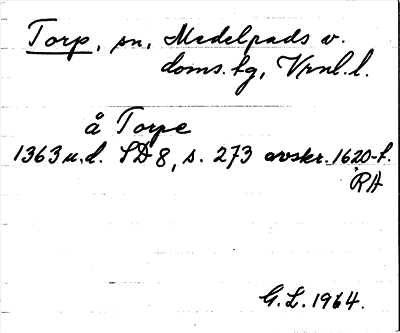 Torp, sn, Medelpads v.
doms. hg, Vrnl. l.
å Torpe
1363 u.d. SD 8, s. 273 avskr. 1620-t.
RA
G.L. 1964.